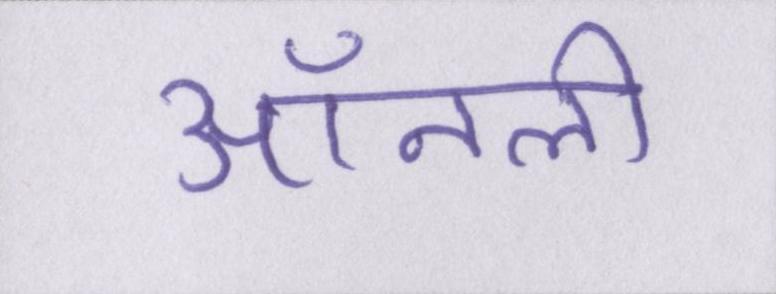 ऑनली